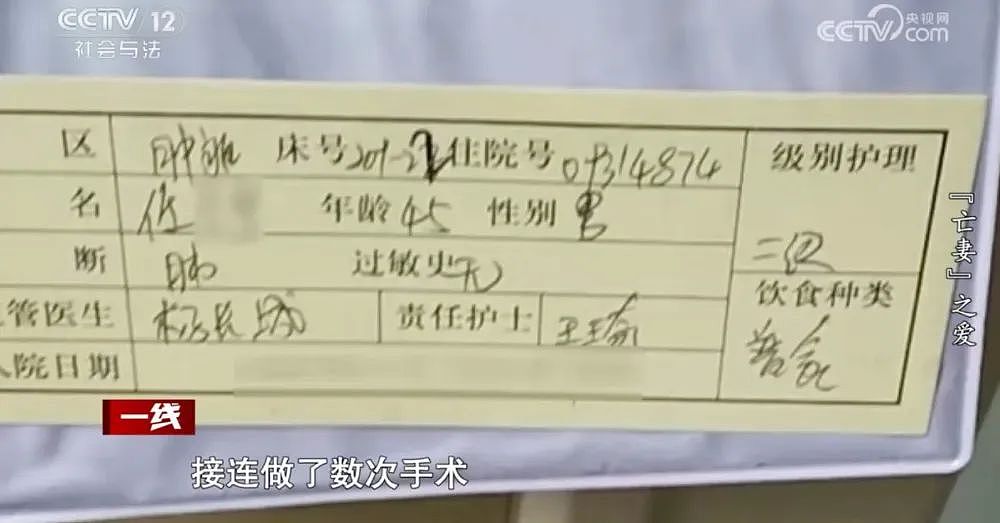 CCTV 12
社会与法
央视网
CCTV com
区 肿瘤 床号 201-22 住院号 09314874
级别护理
名 年龄 45 性别 男
断 过敏史 无
二级
饮食种类
管医生 责任护士 王瑜
普食
院日期
『亡妻』之爱
一线
接连做了数次手术